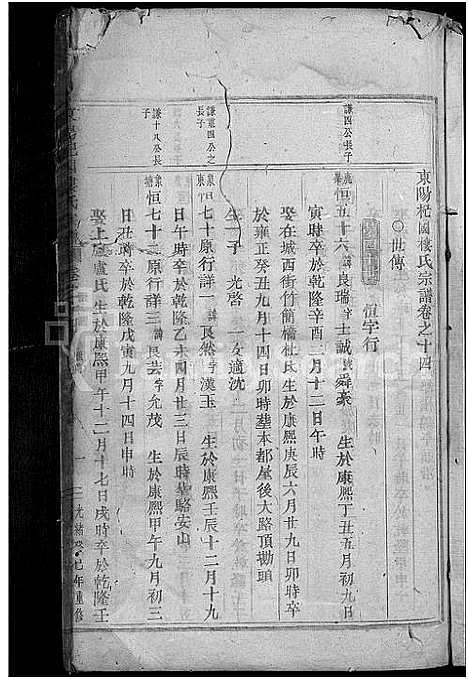 東陽杞國樓氏宗譜卷之十四
世傳
恒字行
謙四公長子
恒五十六 諱良瑞字士誠號舜豪 生於康熙丁丑五月初九日
寅時卒於乾隆辛酉二月十二日午時
娶在城西街竹簡橋杜氏生於康熙庚辰六月廿九日卯時卒
於雍正癸丑九月十四日卯時塟本都屋後大路頂坳頭
生一子 光啓 一女適沈
謙 四公之長子
恒七十原行詳一 諱良然字漢玉 生於康熙壬辰十二月十九
日午時卒於乾隆乙未四月廿三日辰時塟駱安山
謙十八公長子
恒七十二原行詳三 諱良芸字允茂 生於康熙甲午九月初三
日丑時卒於乾隆戊寅九月十四日申時
娶上盧盧氏生於康熙甲午十二月十七日戌時卒於乾隆壬
光緒癸巳年重修